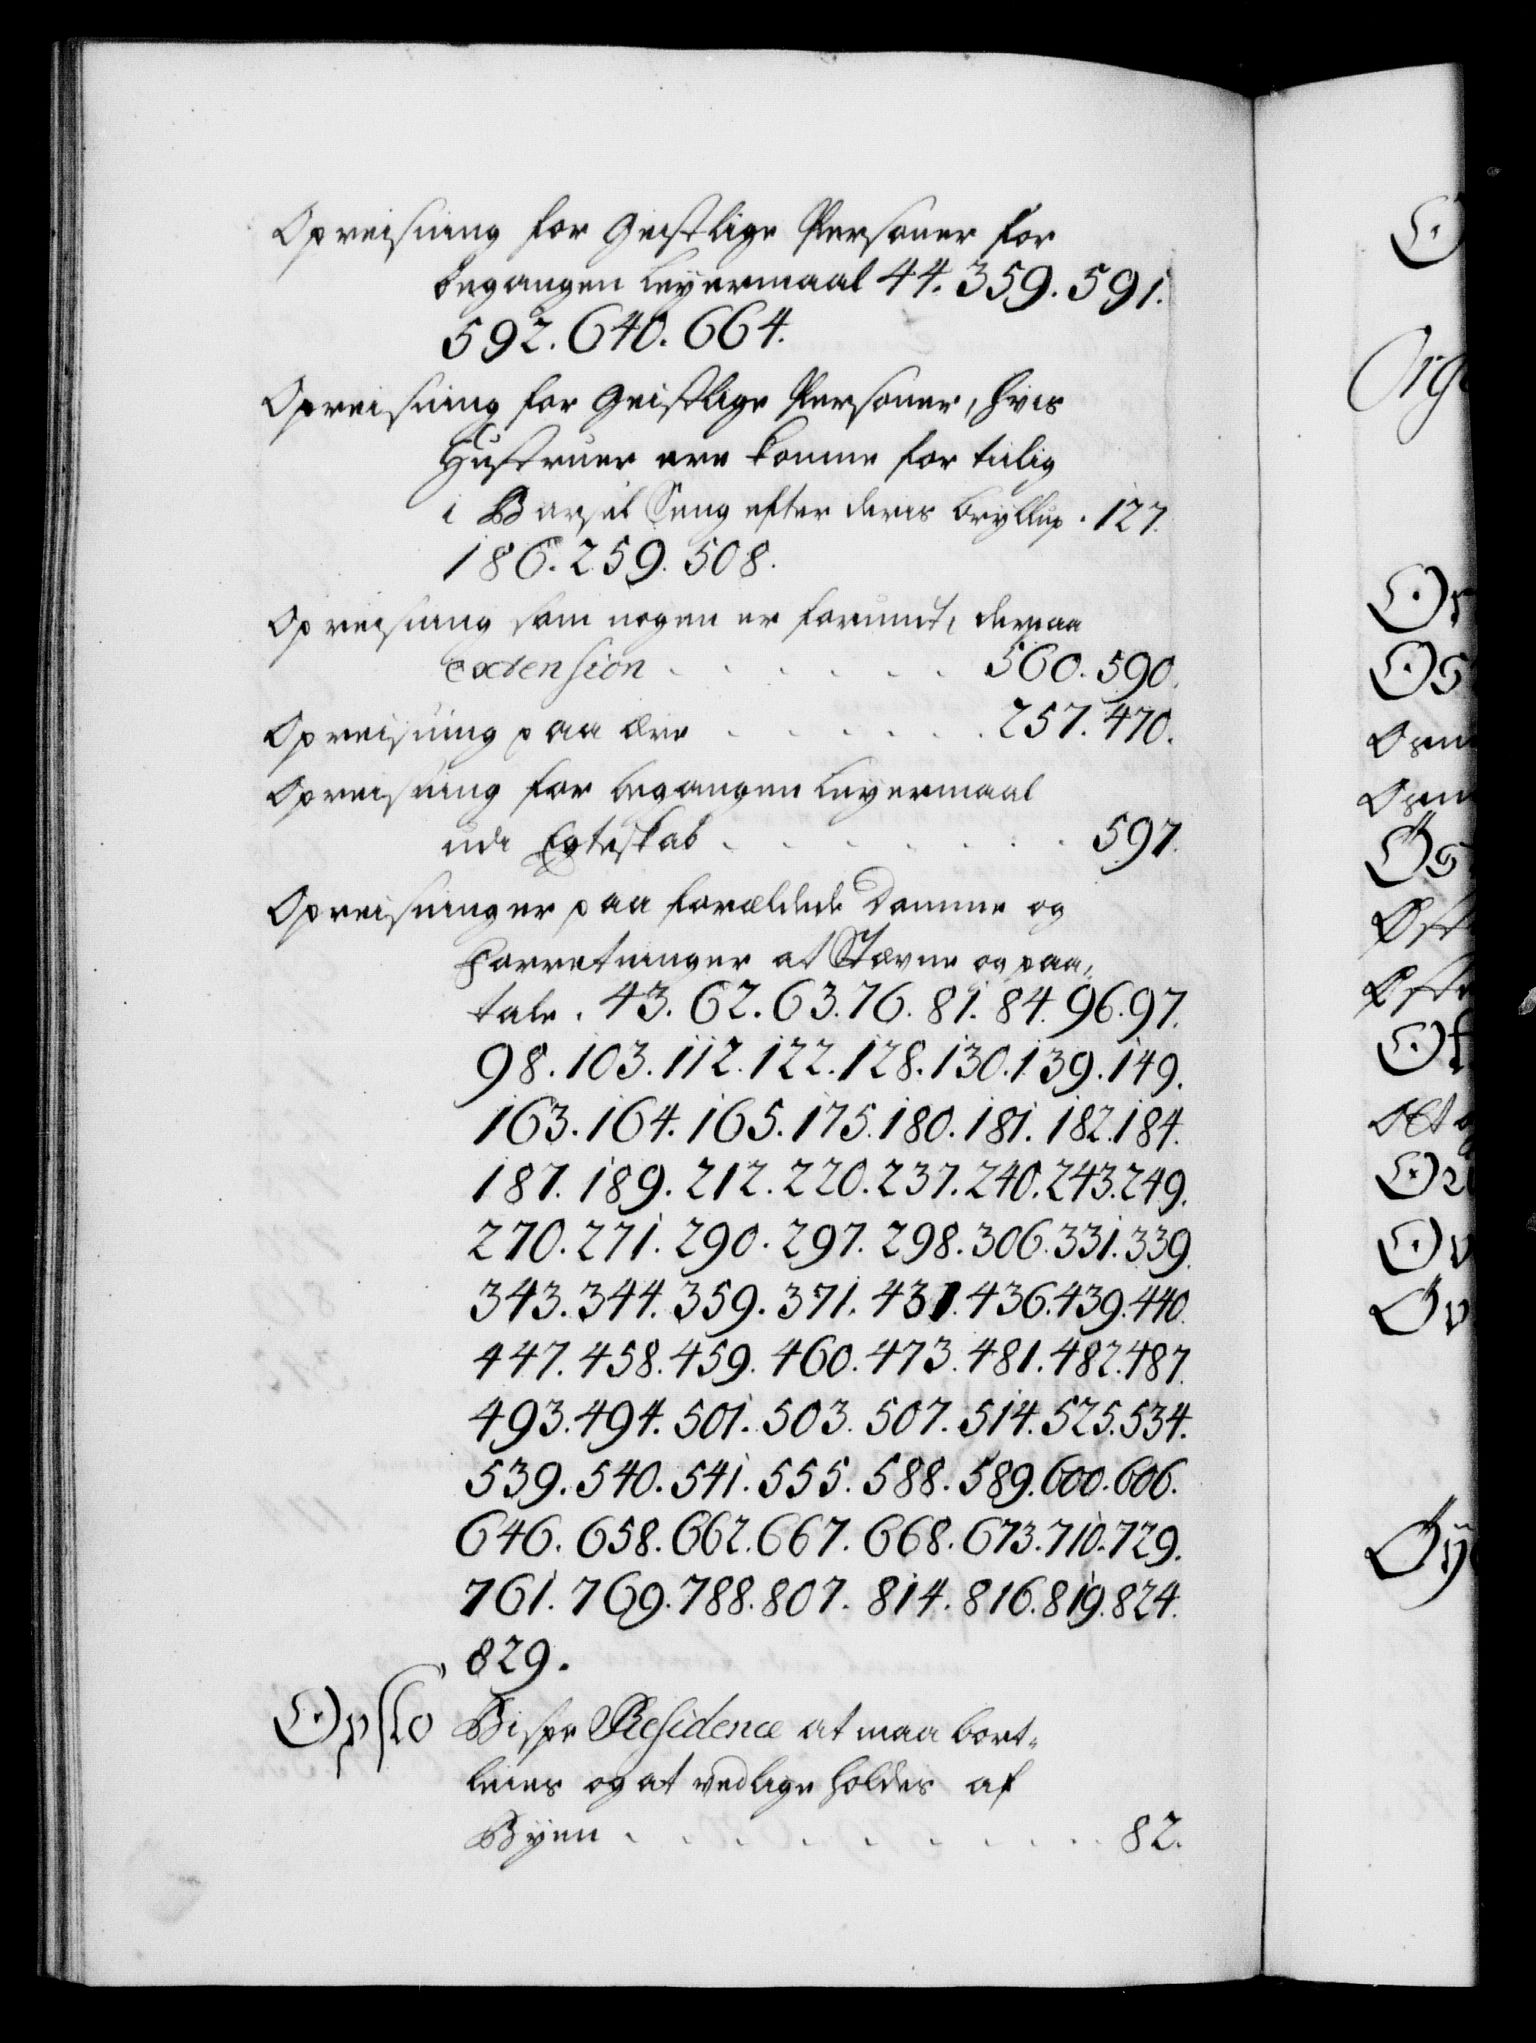 Opreisning for Geistlige Persouner for
begangen leyermaal 44. 359. 591.
592. 640. 664.
Opreisning for Geistlige Persouner, hvis
Hustruer ere komne for tilig
i Barsel Seng efter deris bryllup. 127.
186. 259. 508.
Opreisning som nogen er forundt, derpaa
extension . . . . . . 560. 590.
Opreisning paa ære . . . . . . 257. 470.
Opreisning for begangen leyermaal
udi Egteskab . . . . . . . 597.
Opreisninger paa forældede Domme og
Forretninger at Stævne og paa-
tale. 43. 62. 63. 76. 81. 84. 96. 97.
98. 103. 112. 122. 128. 130. 139. 149.
163. 164. 165. 175. 180. 181. 182. 184.
187. 189. 212. 220. 237. 240. 243. 249.
270. 271. 290. 297. 298. 306. 331. 339.
343. 344. 359. 371. 431. 436. 439. 440.
447. 458. 459. 460. 473. 481. 482. 487.
493. 494. 501. 503. 507. 514. 525. 534.
539. 540. 541. 555. 588. 589. 600. 606.
646. 658. 662. 667. 668. 673. 710. 729.
761. 769. 788. 807. 814. 816. 819. 824.
829.
Opslo Bispe Residence at maa bort-
leies og at vedlige holdes af
Byen . . . . . . . . . 82.